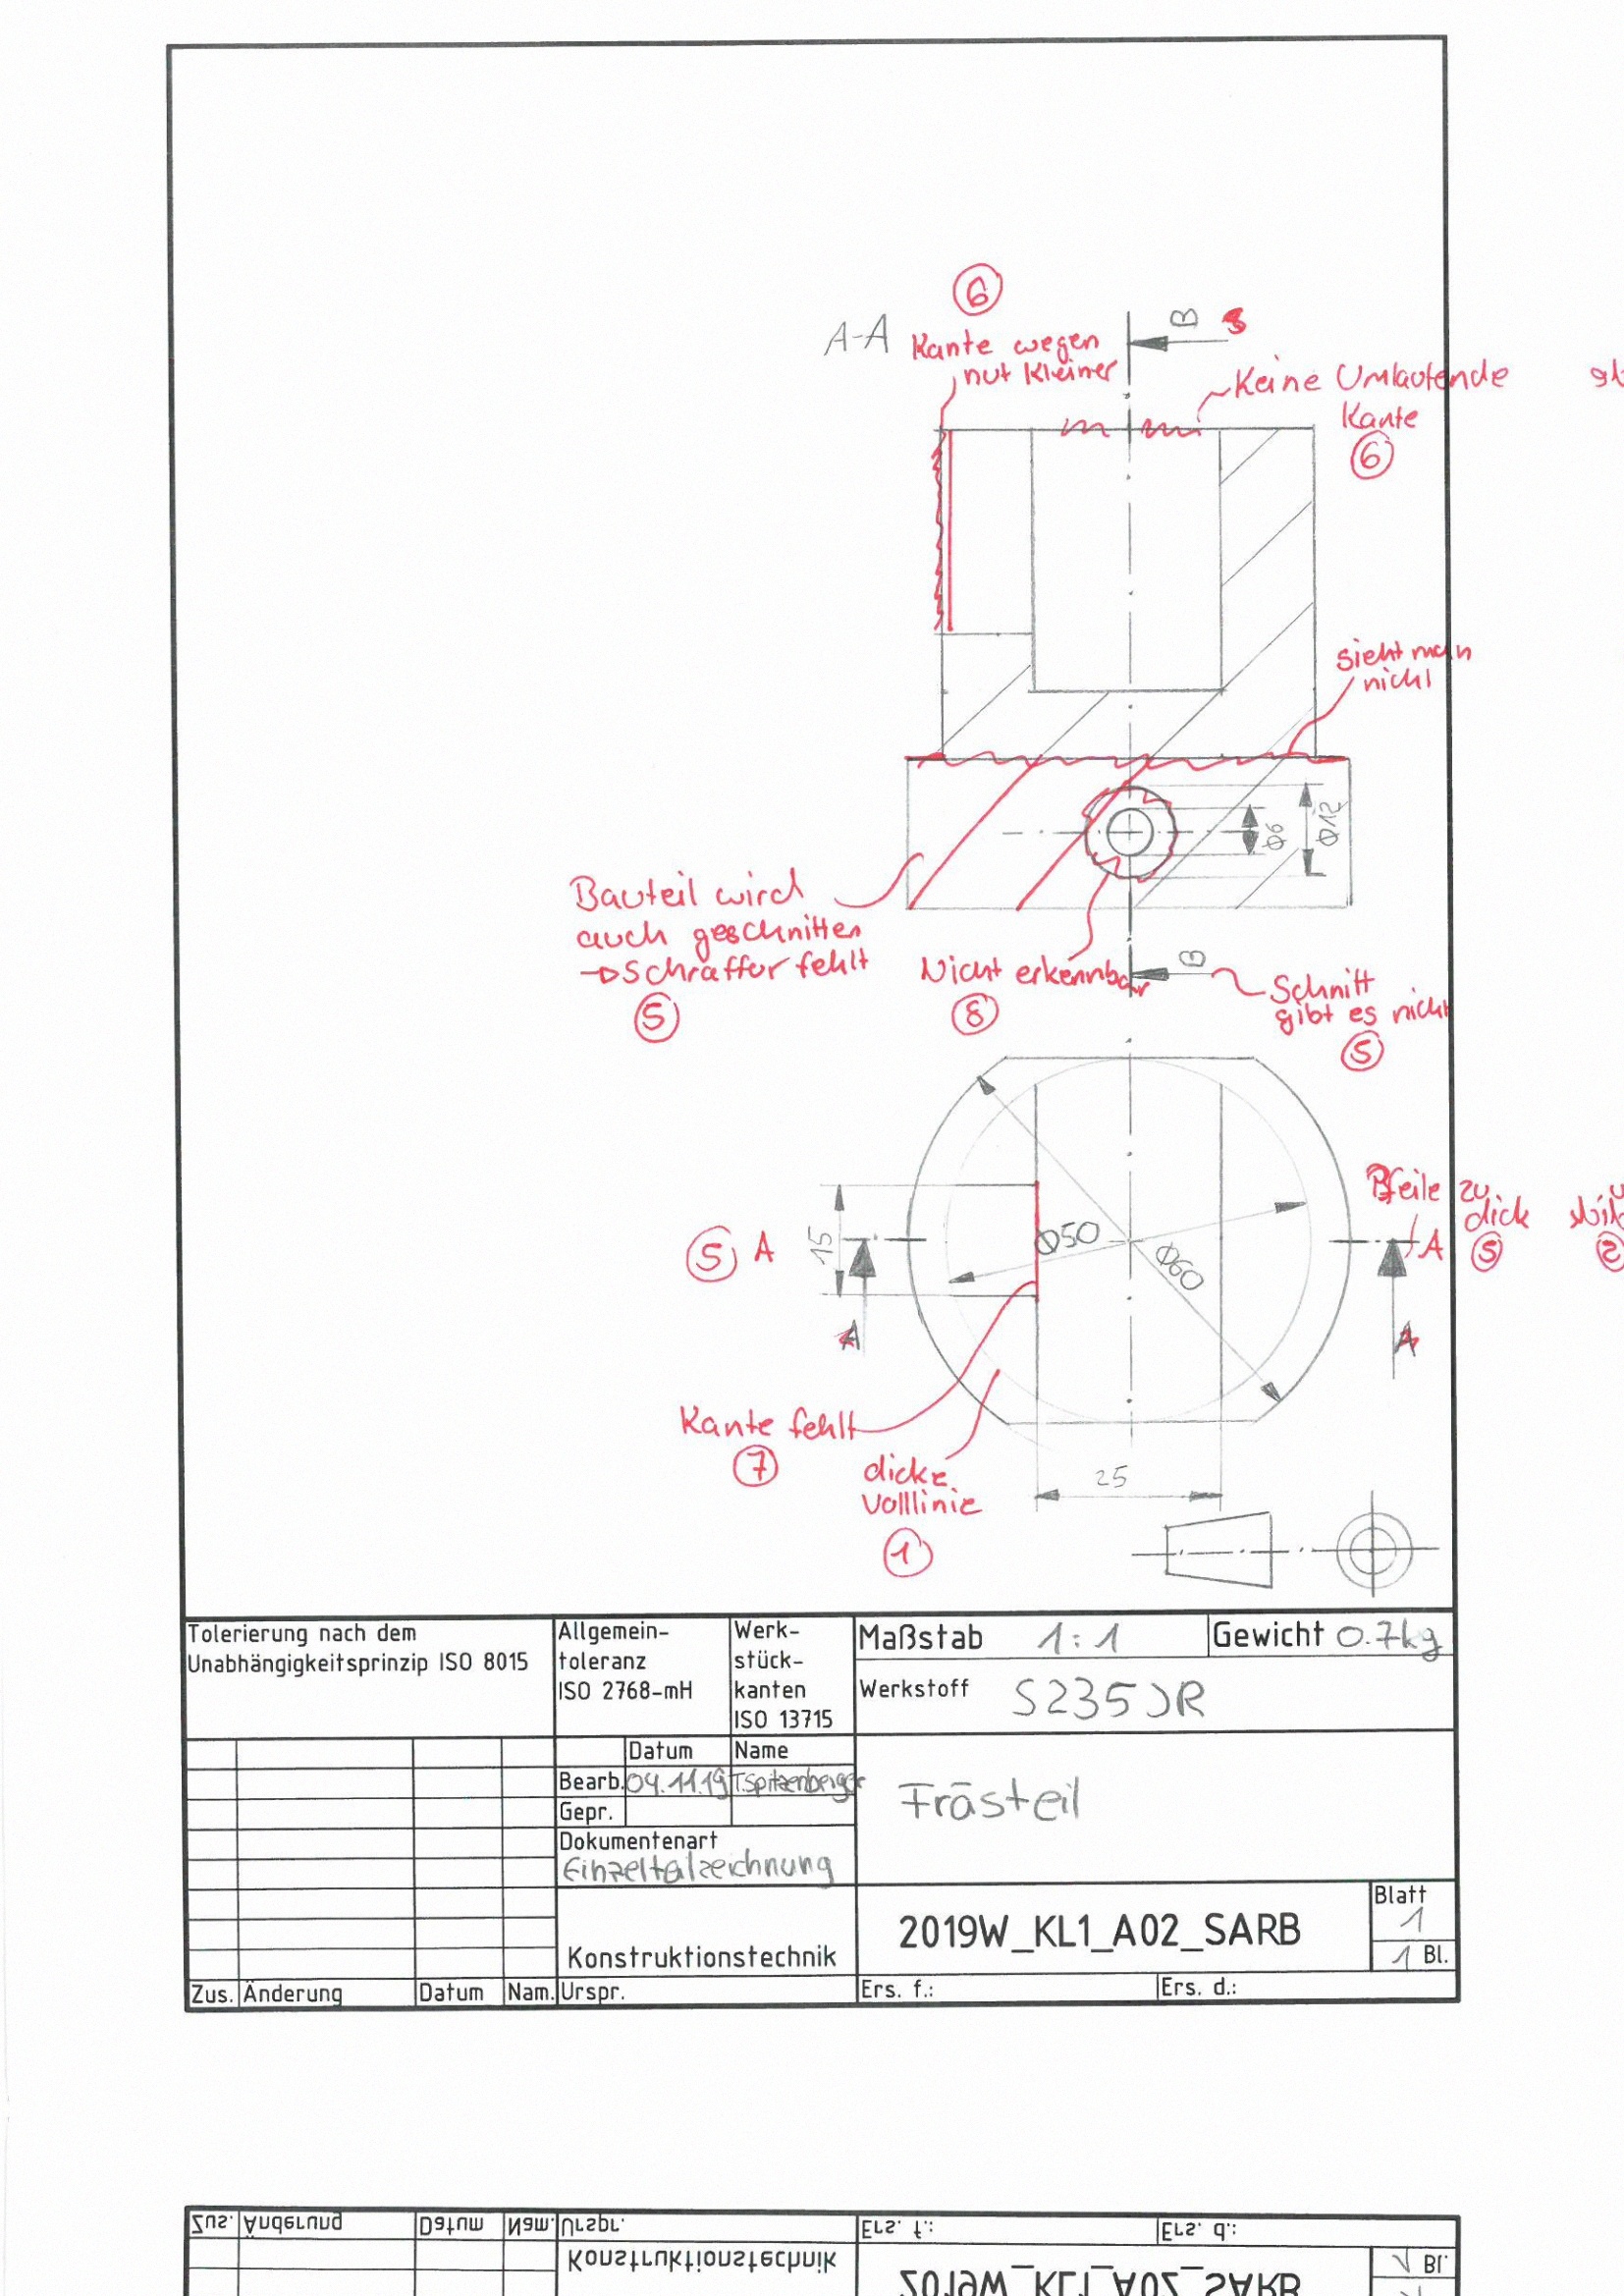 6
A-A
Kante wegen
nut kleiner
B
Keine Umlaufende
Kante
6
sieht man
nicht
Ø6
Ø12
Bauteil wird
auch geschnitten
→ Schraffur fehlt
5
Nicht erkennbar
8
B
Schnitt
gibt es nicht
5
Pfeile zu
dick
5
A
5
A
15
Ø50
Ø60
A
A
Kante fehlt
7
dicke
Volllinie
1
25
Tolerierung nach dem
Unabhängigkeitsprinzip ISO 8015
Allgemein-
toleranz
ISO 2768-mH
Werk-
stück-
kanten
ISO 13715
Maßstab 1:1
Gewicht 0.7kg
Werkstoff S235JR
Datum Name
Bearb. 04.11.19 T.Spitzenberger
Gepr.
Dokumentenart
Einzeltailzeichnung
Frästeil
Konstruktionstechnik
2019W_KL1_A02_SARB
Blatt
1
1 Bl.
Zus. Änderung Datum Nam. Urspr.
Ers. f.: Ers. d.:
Zus. Änderung Datum Nam. Urspr.
Ers. f.: Ers. d.:
Konstruktionstechnik
2019W_KL1_A02_SARB
1 Bl.